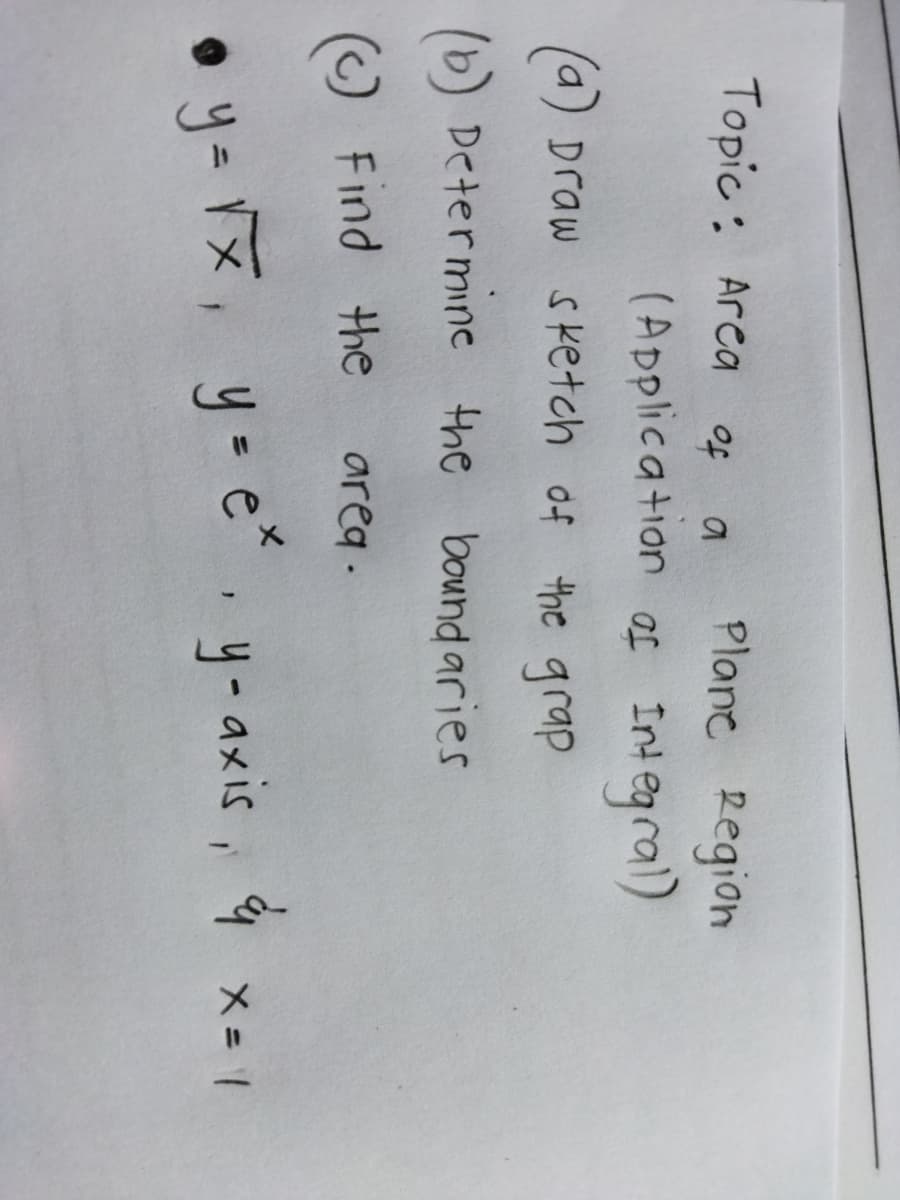 Topic: Area of a Plane Region
(Application of Integral)
(a) Draw sketch of the grap
(b) Determine the boundaries
(c) Find the area.
• y = √x, y = eˣ, y-axis, & x = 1